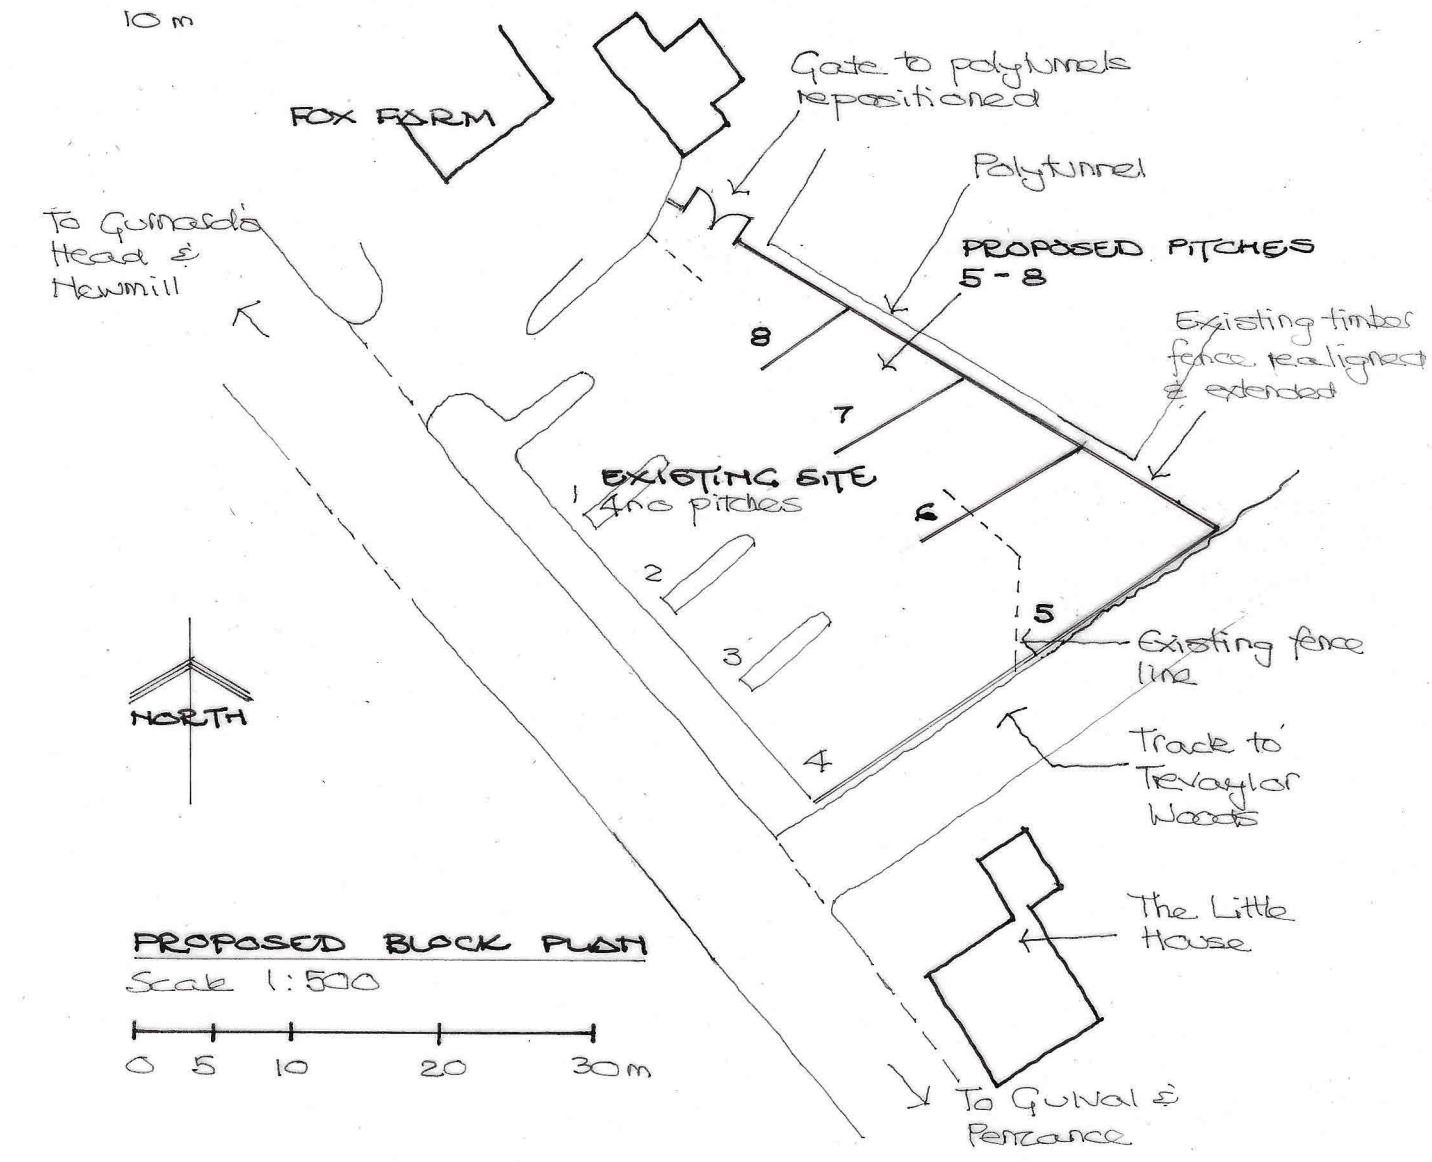 10 m
Gate to polytunnels
repositioned
FOX FARM
Polytunnel
To Gurnard's
Head &
Newmill
PROPOSED PITCHES
5 - 8
Existing timber
fence realigned
& extended
8
7
EXISTING SITE
4no pitches
1
6
2
5
3
Existing fence
line
NORTH
4
Track to
Trevaylor
Woods
The Little
House
PROPOSED BLOCK PLAN
Scale 1:500
0 5 10 20 30m
To Gulval &
Penzance